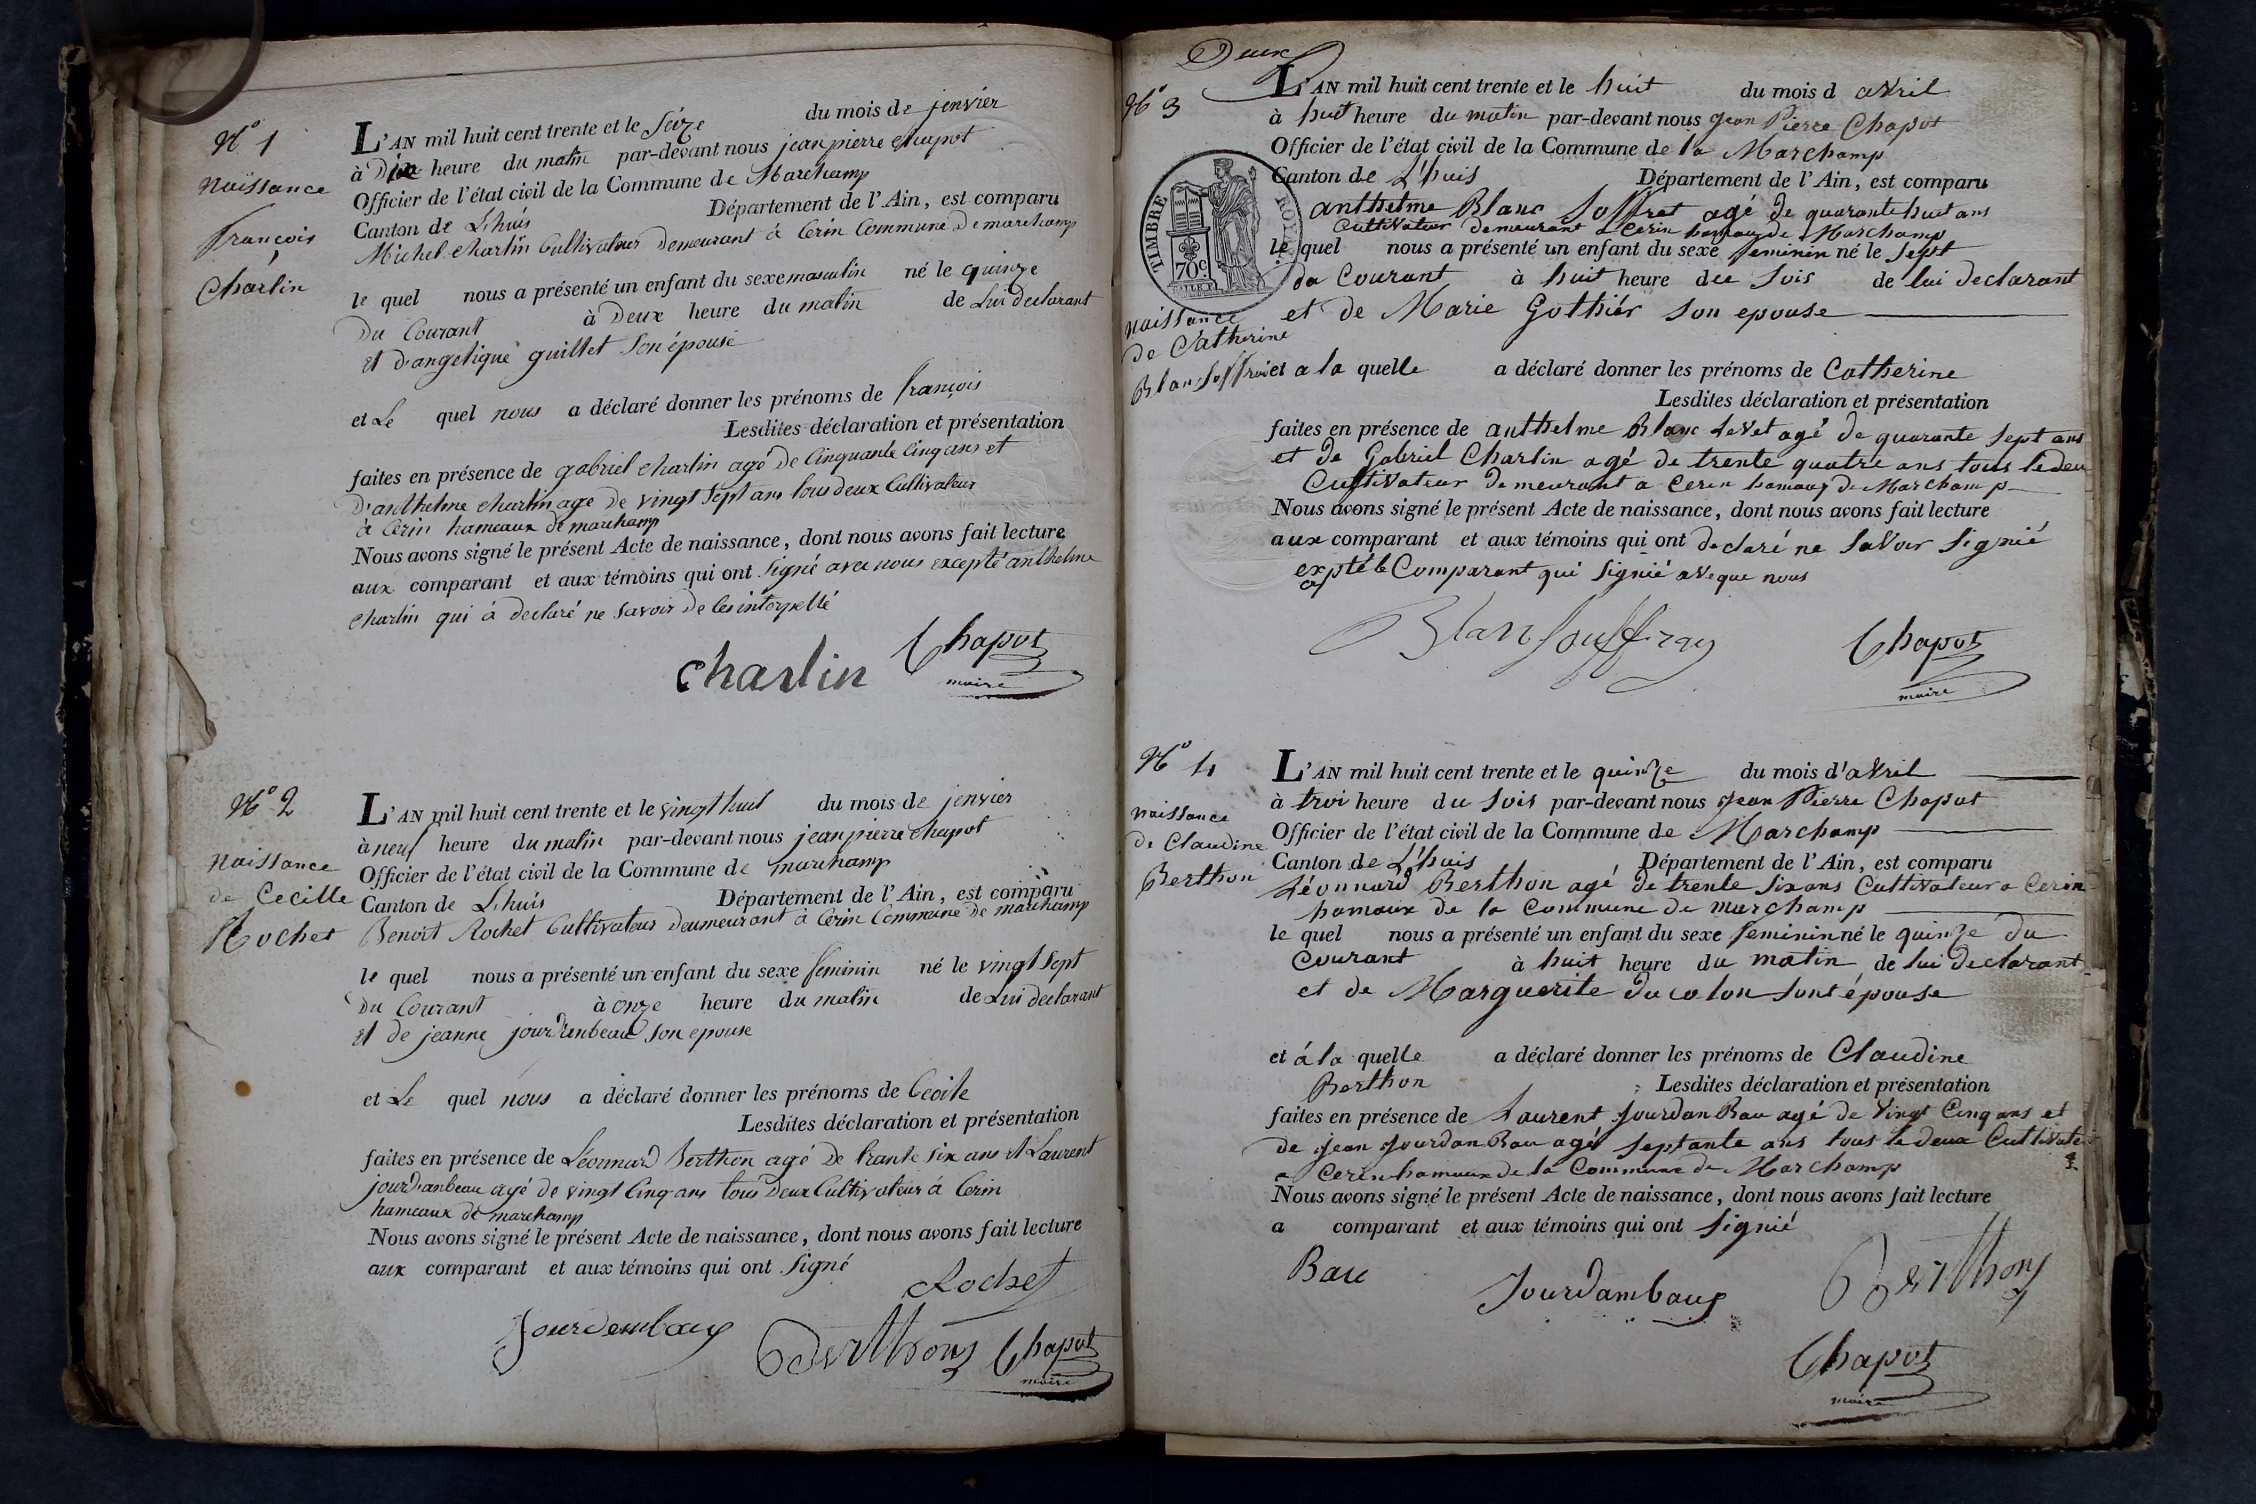 N° 1
naissance
françois
Charlin
L'AN mil huit cent trente et le Seize du mois de jenvier
à Dix heure du matin par-devant nous jean pierre chapot
Officier de l'état civil de la Commune de Marchamp
Canton de Lhuis Département de l'Ain, est comparu
Michel charlin Cultivateur demeurant à Cerin Commune de marchamp
le quel nous a présenté un enfant du sexe masculin né le quinze
Du Courant à Deux heure du matin de Lui declarant
et d'angelique guillet Son épouse
et Le quel nous a déclaré donner les prénoms de françois
Lesdites déclaration et présentation
faites en présence de gabriel charlin agé de Cinquante Cinq ans et
D'anthelme charlin age de vingt Sept ans tous deux Cultivateur
à Cerin hameaux de marchamp
Nous avons signé le présent Acte de naissance, dont nous avons fait lecture
aux comparant et aux témoins qui ont Signé avec nous excepté anthelme
charlin qui à declaré ne Savoir de les interpellé
charlin
Chapot
maire
N° 2
naissance
de Cecille
Rochet
L'AN mil huit cent trente et le vingt huit du mois de jenvier
à neuf heure du matin par-devant nous jean pierre chapot
Officier de l'état civil de la Commune de marchamp
Canton de Lhuis Département de l'Ain, est comparu
Benoit Rochet Cultivateur Deumeurant à Cerin Commune de marchamp
le quel nous a présenté un enfant du sexe feminin né le vingt Sept
Du Courant à onze heure du matin de Lui declarant
et de jeanne jourdanbeau Son epouse
et Le quel nous a déclaré donner les prénoms de Cecile
Lesdites déclaration et présentation
faites en présence de Léonnard Berthon agé de trante Six ans et Laurent
jourdanbeau agé de vingt Cinq ans tous Deux Cultivateur à Cerin
hameaux de marchamp
Nous avons signé le présent Acte de naissance, dont nous avons fait lecture
aux comparant et aux témoins qui ont Signé
Rochet
Jourdembaux
Berthons
Chapot
maire
Deux
N° 3
naissance
de Catherine
Blan Soffrai
TIMBRE ROYAL
70c.
L'AN mil huit cent trente et le huit du mois d avril
à huit heure du matin par-devant nous Jean Pierre Chapot
Officier de l'état civil de la Commune de la Marchamp
Canton de L'huis Département de l'Ain, est comparu
anthelme Blanc Soffret agé de quarante huit ans
Cultivateur demeurant a Cerin hamaux de Marchamp
le quel nous a présenté un enfant du sexe feminin né le Sept
du Courant à huit heure du Soir de lui declarant
et de Marie Gothiér Son epouse
et a la quelle a déclaré donner les prénoms de Catherine
Lesdites déclaration et présentation
faites en présence de anthelme Blanc Levet agé de quarante Sept ans
et de Gabriel Charlin agé de trente quatre ans tous le deu
Cultivateur demeurant a Cerin hamaux de Marchamp
Nous avons signé le présent Acte de naissance, dont nous avons fait lecture
aux comparant et aux témoins qui ont declaré ne Savoir Signié
expté le Comparant qui Signié aveque nous
Blan Souffray
Chapot
maire
N° 4
naissance
de Claudine
Berthon
L'AN mil huit cent trente et le quinze du mois d'avril
à troi heure du Soir par-devant nous Jean Pierre Chapot
Officier de l'état civil de la Commune de Marchamp
Canton de L'huis Département de l'Ain, est comparu
Léonnard Berthon agé de trente Six ans Cultivateur a Cerin
hamaux de la Commune de Marchamp
le quel nous a présenté un enfant du sexe feminin né le quinze du
Courant à huit heure du matin de lui declarant
et de Marguerite Ducolon Sont épouse
et á la quelle a déclaré donner les prénoms de Claudine
Berthon Lesdites déclaration et présentation
faites en présence de Laurent Jourdan Bau agé de vingt Cinq ans et
de Jean Jourdan Bau agé Septante ans tous le deux Cultivateur
a Cerin hamaux de la Commune de Marchamp
Nous avons signé le présent Acte de naissance, dont nous avons fait lecture
a comparant et aux témoins qui ont Signié
Bau
Jourdambaux
Berthons
Chapot
maire